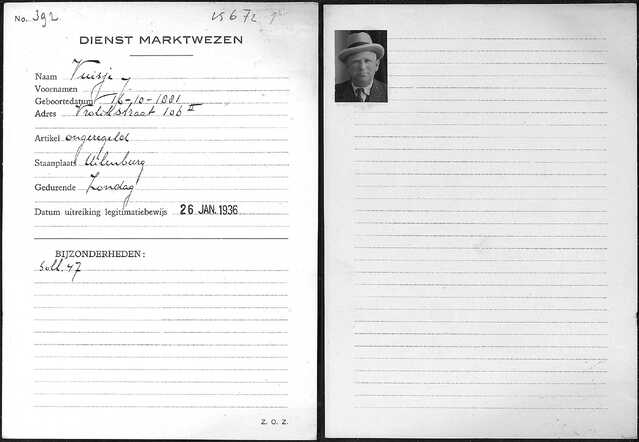 No. 392
DIENST MARKTWEZEN
Naam Vuisje
Voornamen J
Geboortedatum 16-10-1881
Adres Vrolikstraat 106 II
Artikel ongeregeld
Staanplaats Uilenburg
Gedurende Zondag
Datum uitreiking legitimatiebewijs 26 JAN. 1936
BIJZONDERHEDEN:
Soll. 47
Z. O. Z.